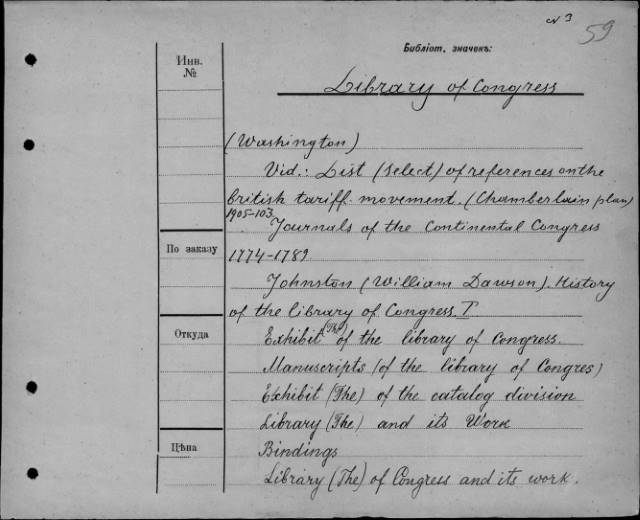 № 3
59
Библiот. значекъ:
Инв.
№
Library of Congress
(Washington)
Vid.: List (select) of references on the
british tariff-movement. (Chamberlain plan)
1905-103.
Journals of the Continental Congress
По заказу
1774-1789
Johnston (William Dawson). History
of the library of Congress. I.
Откуда
Exhibit (The) of the library of Congress.
Manuscripts (of the library of Congres)
Exhibit (The) of the catalog division
Library (The) and its Work
Цѣна
Bindings
Library (The) of Congress and its work.